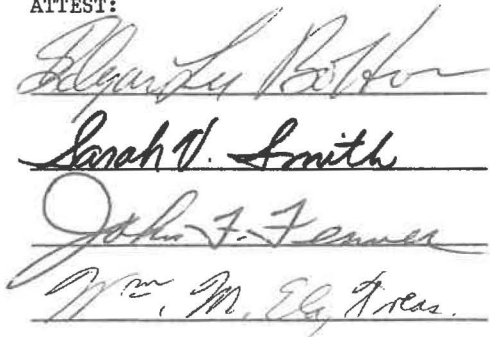 ATTEST:
Edgar Lee
Sarah V. Smith
John F. Fenner
Wm. M. Ely, Treas.